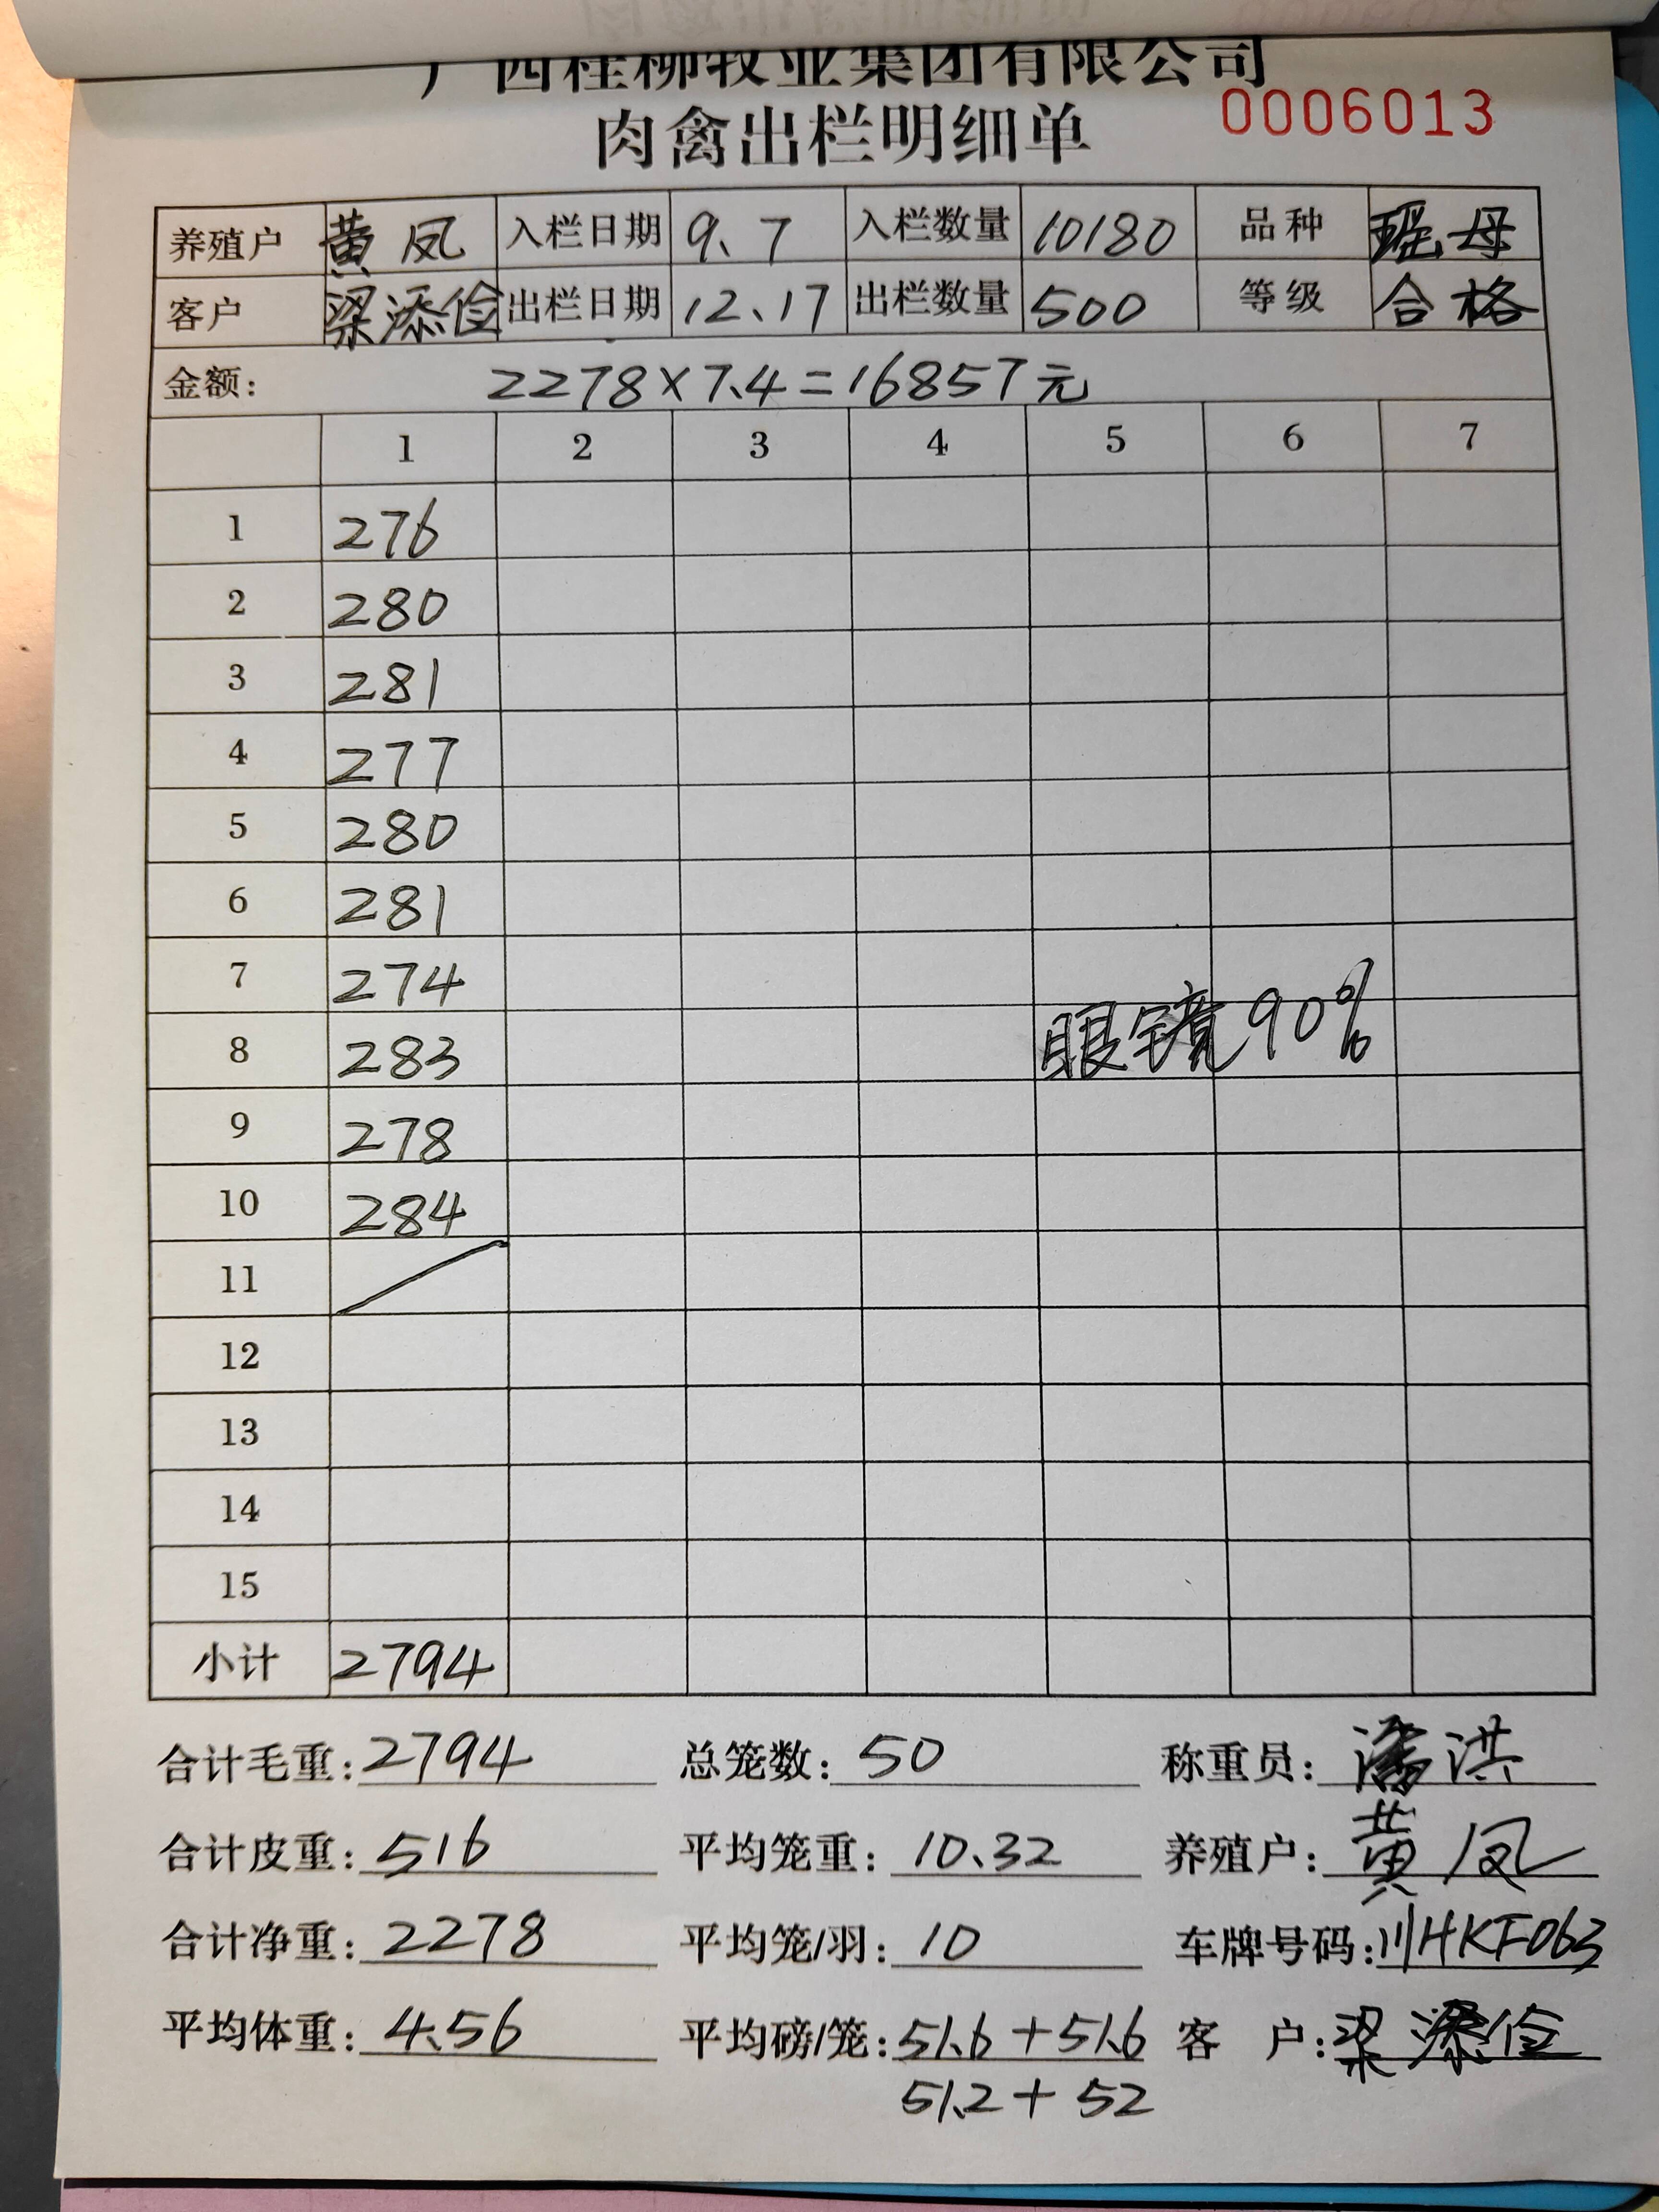 广西桂柳牧业集团有限公司
肉禽出栏明细单 0006013
养殖户 黄凤 入栏日期 9.7 入栏数量 10180 品种 瑶母
客户 梁添俭 出栏日期 12.17 出栏数量 500 等级 合格
金额: 2278×7.4=16857元
1 2 3 4 5 6 7
1 276
2 280
3 281
4 277
5 280
6 281
7 274
8 283 眼镜90%
9 278
10 284
11
12
13
14
15
小计 2794
合计毛重:2794 总笼数:50 称重员:潘洪
合计皮重:516 平均笼重:10.32 养殖户:黄凤
合计净重:2278 平均笼/羽:10 车牌号码:川HKF063
平均体重:4.56 平均磅/笼:51.6+51.6 客户:梁添俭
51.2+52